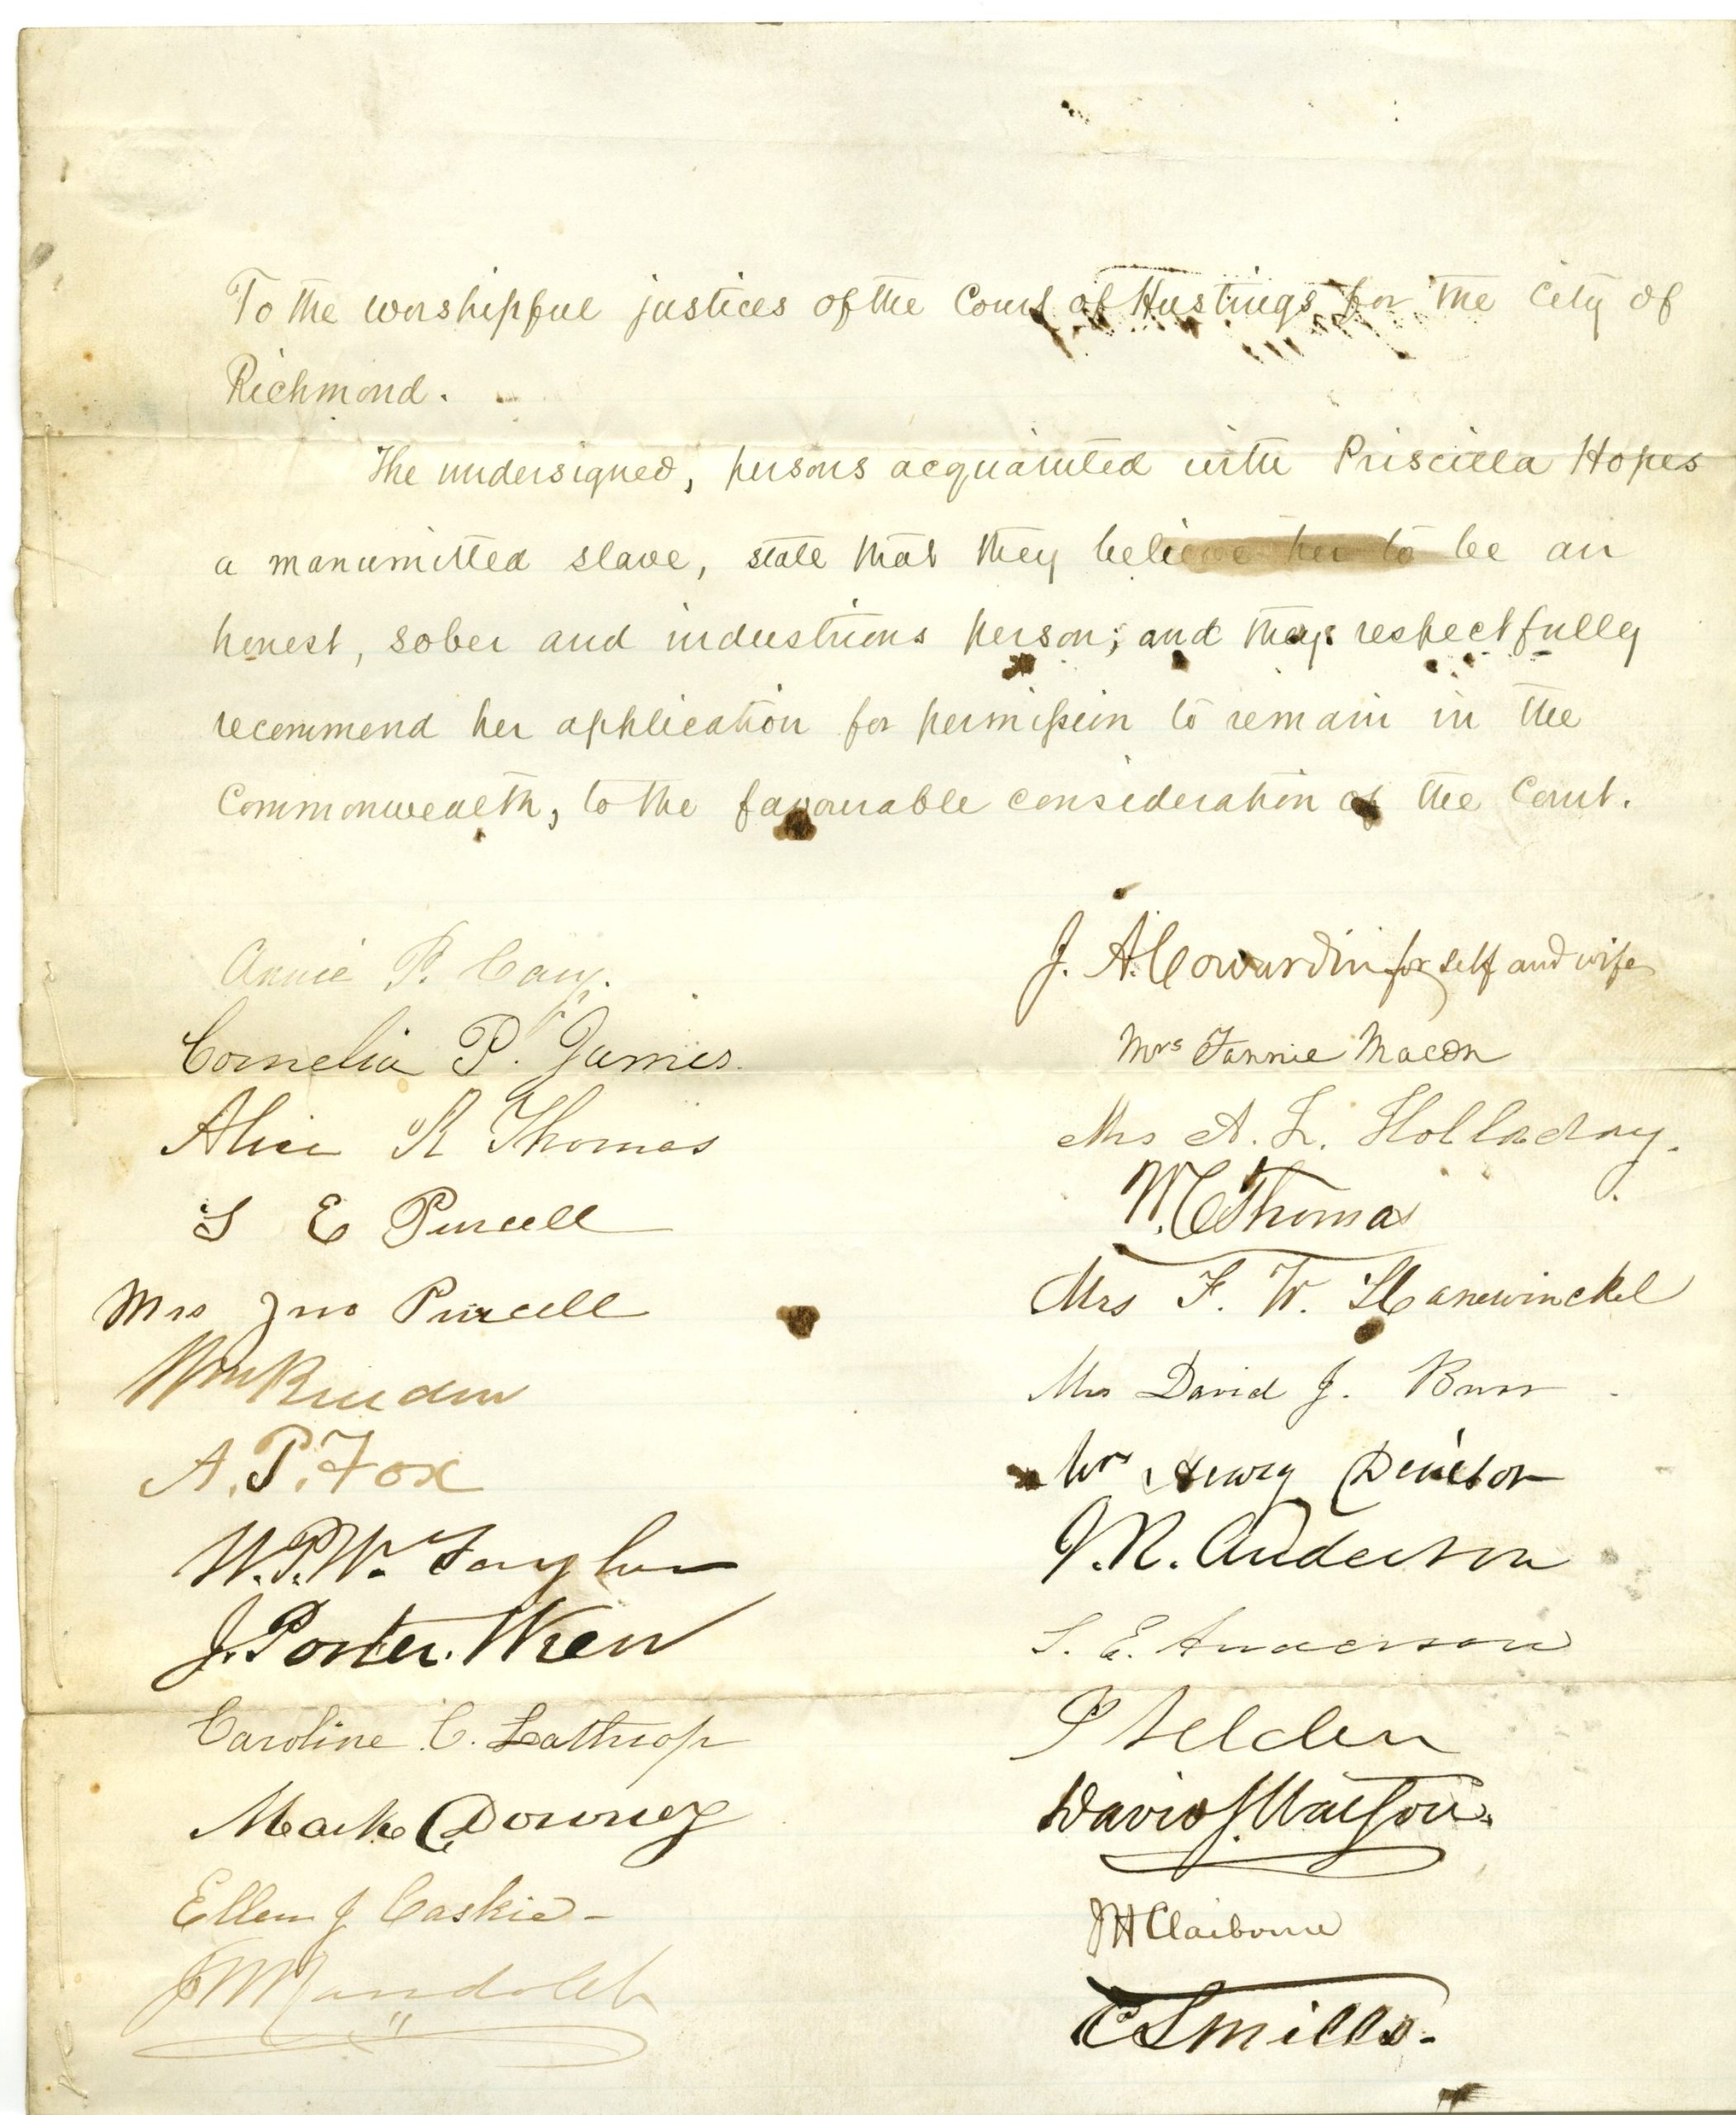 To the worshipful justices of the Court of Hustings for the City of
Richmond.
The undersigned, persons acquainted with Priscilla Hopes
a manumitted slave, state that they believe her to be an
honest, sober and industrious person; and they respectfully
recommend her application for permission to remain in the
Commonwealth, to the favourable consideration of the Court.
Annie P. Cary.
Cornelia P. James.
Alice R Thomas
S E Purcell
Mrs Jno Purcell
Wm
A. P. Fox
W. P. W. Taylor
J. Porter. Wren
Caroline C. Lathrop
Mark Downey
Ellen J Caskie-
J W Randolph
J. A. Cowardin for self and wife
Mrs Fannie Macon
Mrs A. L. Holladay.
W. C Thomas
Mrs F. W. Hanewinckel
Mrs David J. Burr
Henry
J. R. Anderson
S. E. Anderson
Selden
David J. Watson.
J H Claiborne
C S Mills.